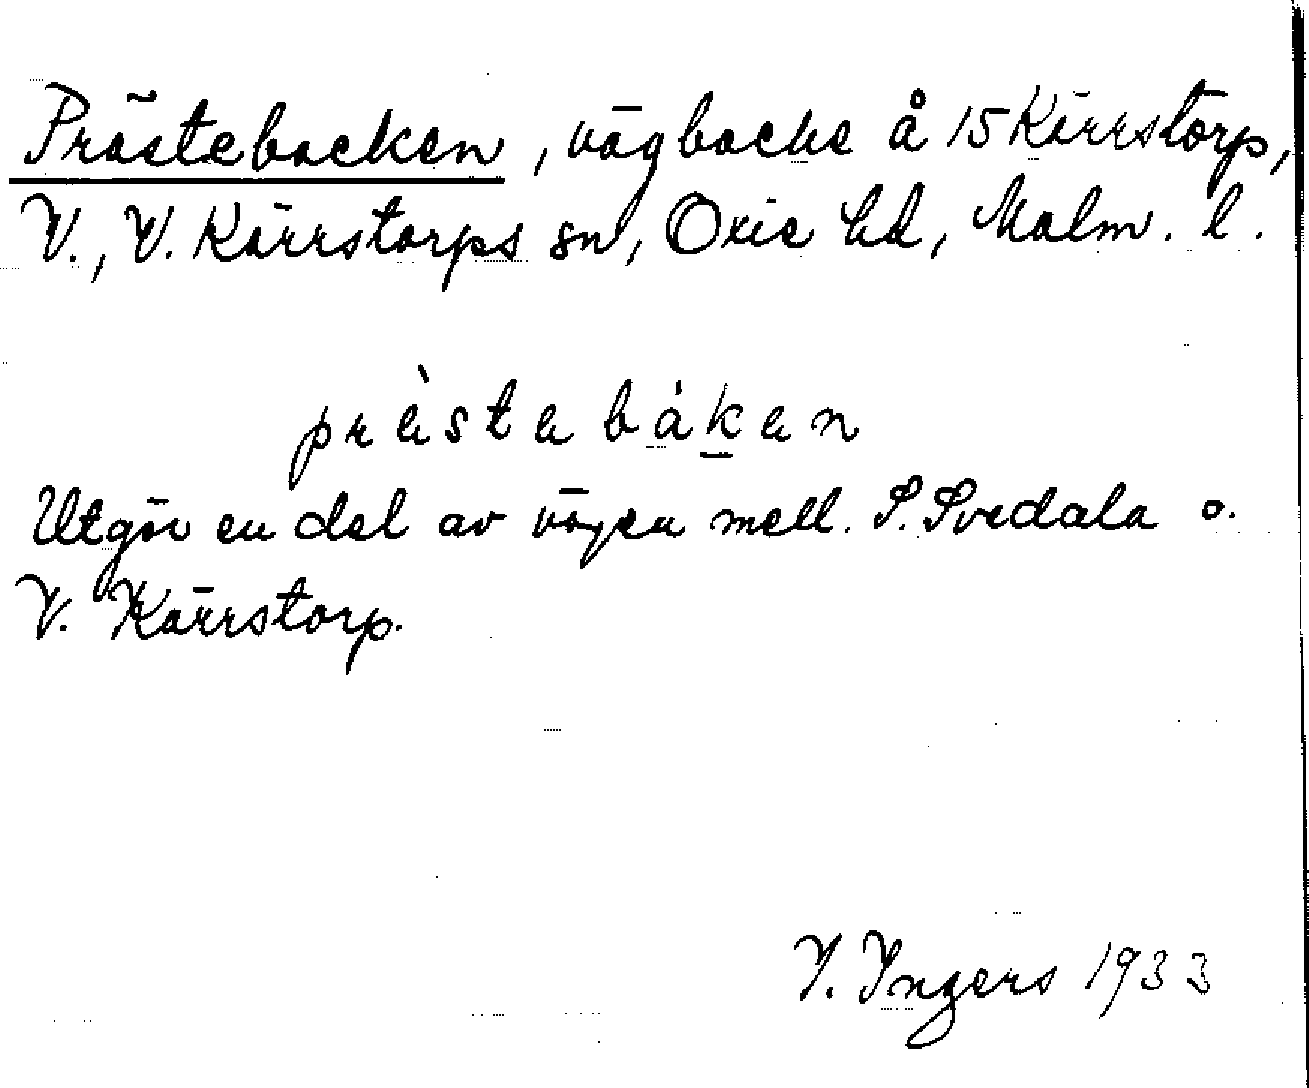 Prästebacken, vägbacke å 15 Kärrstorp,
V., V. Kärrstorps sn, Oxie hd, Malm. l.
prèstabákan
Utgör en del av vägen mell. S. Svedala o.
V. Kärrstorp.
I. Ingers 1933